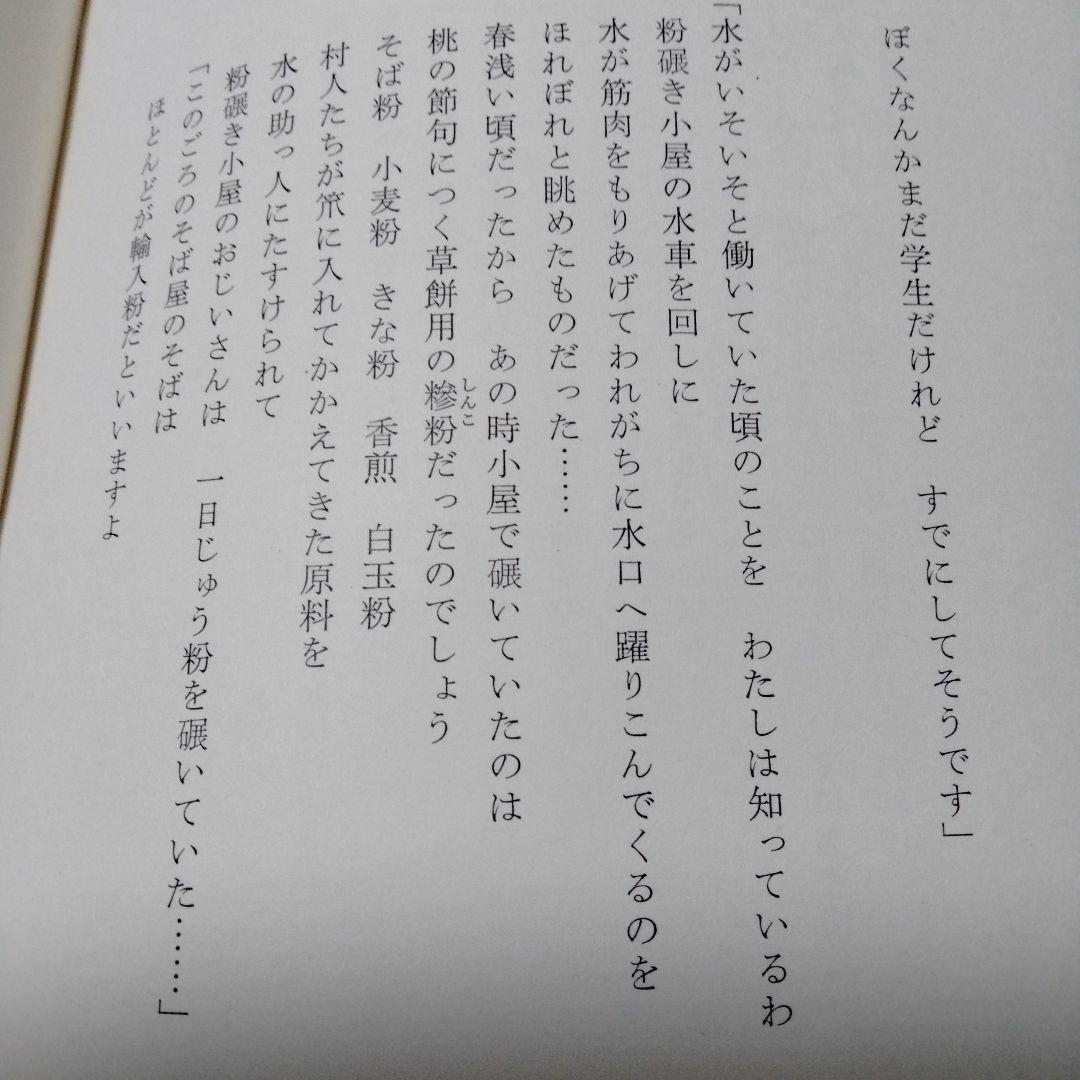 ぼくなんかまだ学生だけれど　すでにしてそうです」
「水がいそいそと働いていた頃のことを　わたしは知っているわ
粉碾き小屋の水車を回しに
水が筋肉をもりあげてわれがちに水口へ躍りこんでくるのを
ほれぼれと眺めたものだった……
春浅い頃だったから　あの時小屋で碾いていたのは
桃の節句につく草餅用の糝粉だったのでしょう
しんこ
そば粉　小麦粉　きな粉　香煎　白玉粉
村人たちが笊に入れてかかえてきた原料を
水の助っ人にたすけられて
粉碾き小屋のおじいさんは　一日じゅう粉を碾いていた……」
「このごろのそば屋のそばは
ほとんどが輸入粉だといいますよ